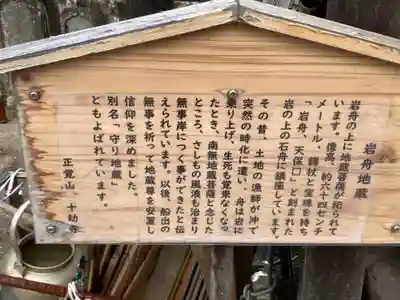 岩舟地蔵
岩舟の上に地蔵菩薩が祀られて
います。像高、約六十四センチ
メートル、錫杖と宝珠を持ち
「岩舟、天保□」と刻まれた
岩の上の石舟に鎮座しています。
その昔、土地の漁師が沖で
突然の時化に遭い、舟は岩に
乗り上げ、生死も覚束なくなっ
たとき、南無地蔵菩薩と念じた
ところ、さしもの風浪も治まり
無事岸につく事ができたと伝
えられています。以後、船出の
無事を祈って地蔵尊を安置し
信仰を深めました。
別名「守り地蔵」
ともよばれています。
正覚山 十劫寺